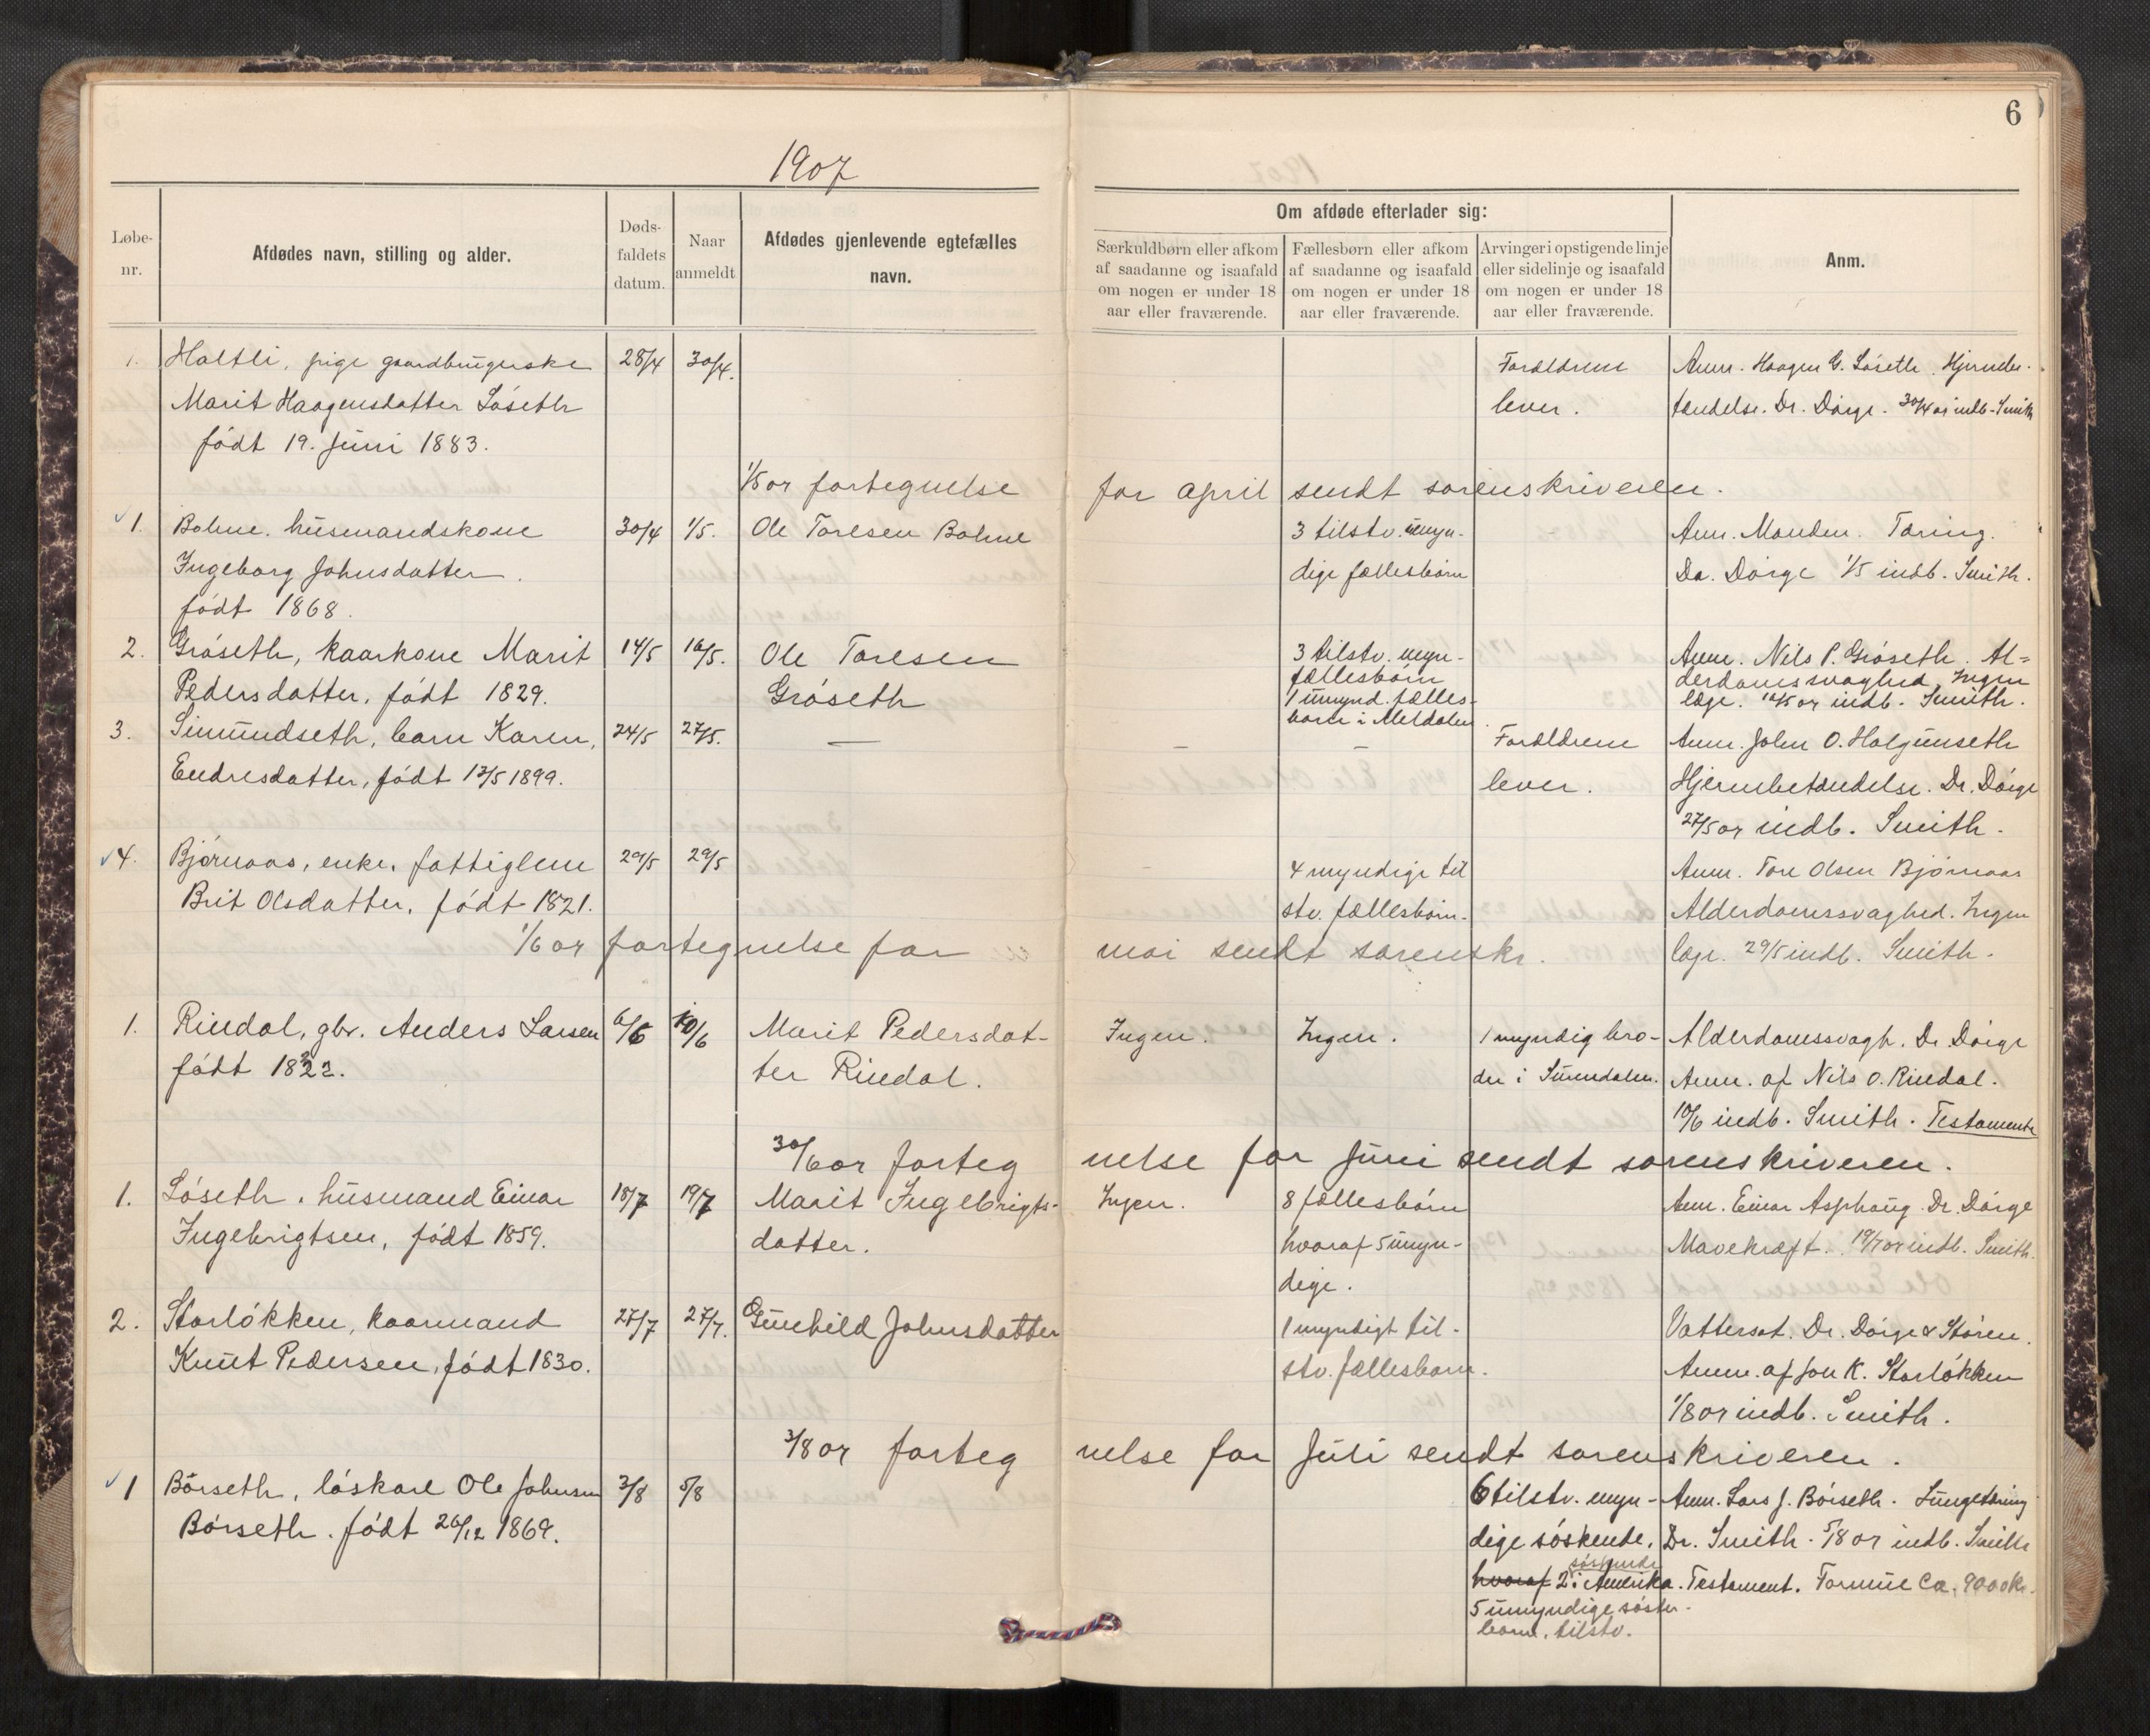 6
1907
Løbe-
nr.
Afdødes navn, stilling og alder.
Døds-
faldets
datum.
Naar
anmeldt
Afdødes gjenlevende egtefælles
navn.
Om afdøde efterlader sig:
Særkuldbørn eller afkom
af saadanne og isaafald
om nogen er under 18
aar eller fraværende.
Fællesbørn eller afkom
af saadanne og isaafald
om nogen er under 18
aar eller fraværende.
Arvinger i opstigende linje
eller sidelinje og isaafald
om nogen er under 18
aar eller fraværende.
Anm.
1. Holtli, pige gaardbrugerske 28/4 30/4.
Marit Haagensdatter Løseth
født 19. Juni 1883.
Forældrene
lever.
Anm. Haagen G. Løseth. Hjernebe-
tændelse. Dr. Dørge. 30/4 07 indb. Smith
1/5 07 fortegnelse for april sendt sorenskriveren.
1. Bolme. husmandskone 30/4 1/5. Ole Toresen Bolme
Ingeborg Johnsdatter.
født 1868.
3 tilstv. umyn-
dige fællesbørn
Anm. Manden. Tæring.
Dr. Dørge 1/5 indb. Smith.
2. Grøseth, kaarkone Marit 14/5 16/5. Ole Toresen
Pedersdatter, født 1829. Grøseth
3 tilstv. myn-
fællesbørn
1 umynd. fælles-
barn i Meldalen.
Anm. Nils P. Grøseth. Al-
derdomssvaghed. Ingen
læge. 16/5 07 indb. Smith.
3. Simundseth, barn Karen, 24/5 27/5. —
Endresdatter, født 12/5 1899.
— —
Forældrene
lever.
Anm. John O. Halgunseth
Hjernebetændelse. Dr. Dørge
27/5 07 indb. Smith.
4. Bjørnaas, enke, fattiglem 29/5 29/5
Brit Olsdatter, født 1821.
4 myndige til
stv. fællesbørn.
Anm. Tore Olsen Bjørnaas
Alderdomssvaghed. Ingen
læge. 29/5 indb. Smith.
1/6 07 fortegnelse for mai sendt sorenskr.
1. Rindal, gbr. Anders Larsen 6/6 10/6 Marit Pedersdat-
født 1822. ter Rindal.
Ingen. Ingen.
1 myndig bro-
der i Surendalen.
Alderdomssvagh. Dr. Dørge
Anm. af Nils O. Rindal.
10/6 indb. Smith. Testamente
30/6 07 forteg nelse for Juni sendt sorenskriveren.
1. Løseth, husmand Einar 18/7 19/7 Marit Ingebrigts-
Ingebrigtsen, født 1859. datter.
Ingen.
8 fællesbørn
hvoraf 5 umyn-
dige.
Anm. Einar Asphaug. Dr. Dørge
Mavekræft. 19/7 07 indb. Smith.
2. Storløkken, kaarmand 27/7 27/7. Gunhild Johnsdatter
Knut Pedersen, født 1830.
1 myndigt til-
stv. fællesbarn.
Vattersot. Dr. Dørge & Støren.
Anm. af Jon K. Storløkken
1/8 07 indb. Smith.
3/8 07 forteg nelse for Juli sendt sorenskriveren.
1 Børseth, løskarl Ole Johnsen 3/8 5/8
Børseth. født 26/12 1869.
6 tilstv. myn-
dige søskende.
hvoraf 2 søskende i Amerika.
5 umyndige søster-
børn, tilstv.
Anm. Lars J. Børseth. Lungetæring
Dr. Smith. 5/8 07 indb. Smith
Testament. Formue ca. 9000 kr.